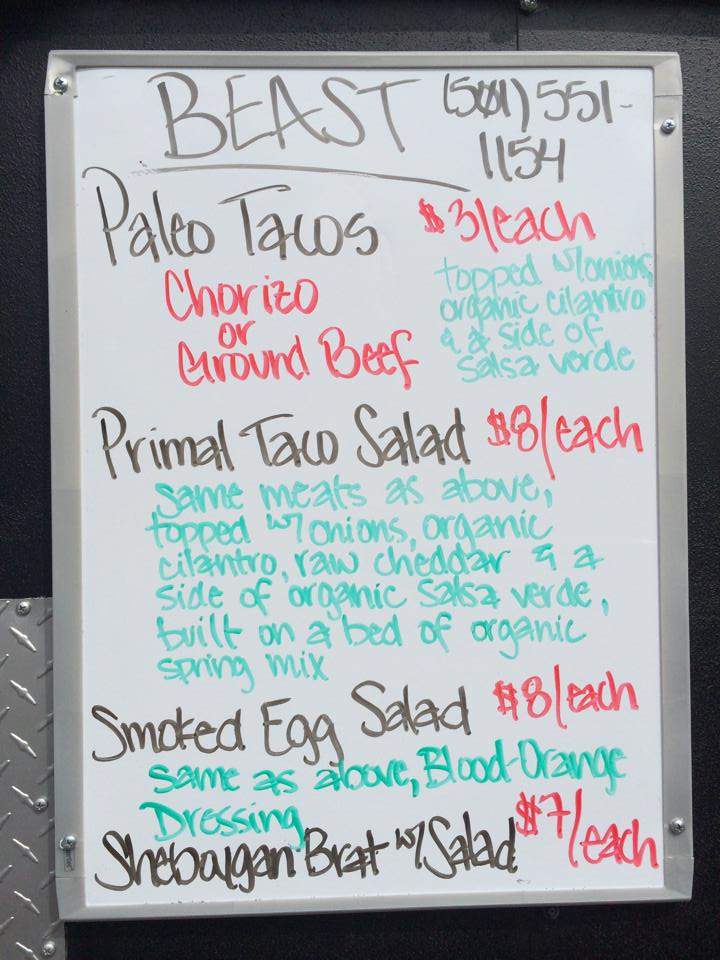 BEAST (501) 551-
1154
Paleo Tacos $3/each
Chorizo
or
Ground Beef
topped w/onions,
organic cilantro
& a side of
salsa verde
Primal Taco Salad $8/each
same meats as above,
topped w/ onions, organic
cilantro, raw cheddar & a
side of organic salsa verde,
built on a bed of organic
spring mix
Smoked Egg Salad $8/each
same as above, Blood-Orange
Dressing
Sheboygan Brat w/ Salad $7/each